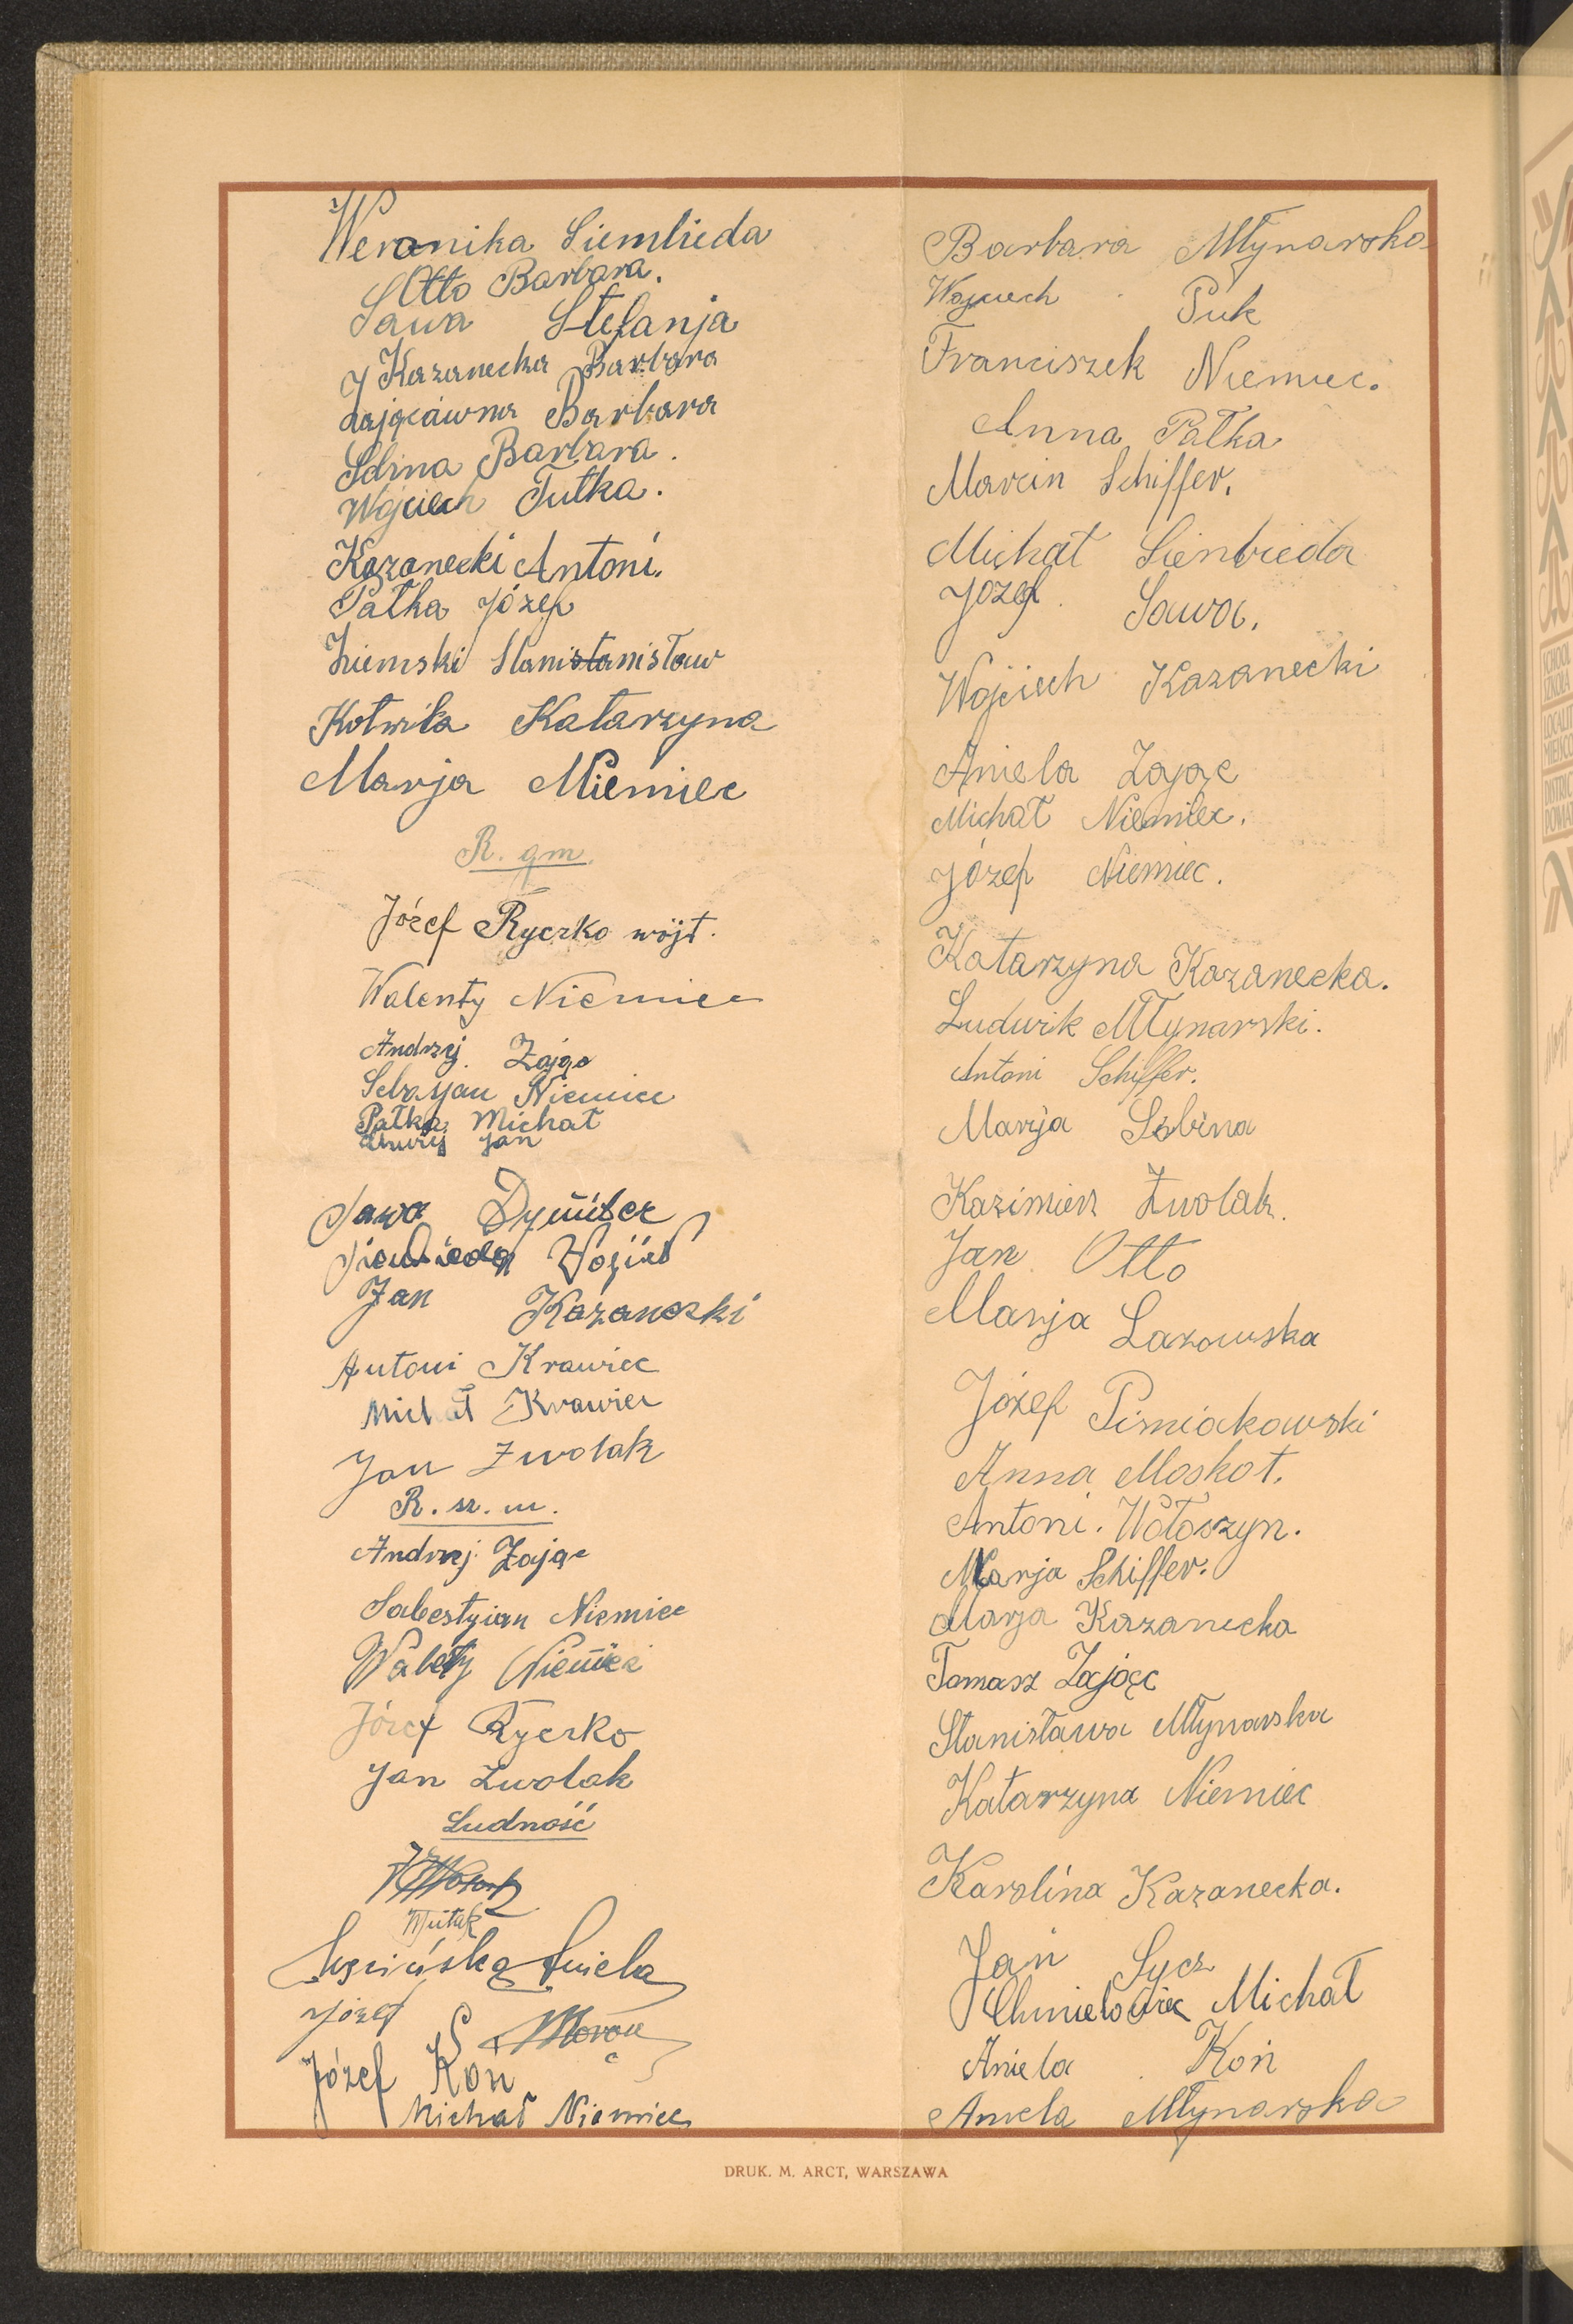 Weronika Siembieda
Otto Barbara.
Sawa Stefanja
Kazanecka Barbara
Zającówna Barbara
Barbara.
Wojciech Tutka.
Kazanecki Antoni.
Pałka Józef
Ziemski Stanistanisław
Kotwiła Katarzyna
Marja Niemiec
R. gm.
Józef Ryczko wójt.
Walenty Niemiec
Andrzej Zając
Sebastjan Niemiec
Pałka Michał
Jan
Sawa Dymiter
Siembieda
Jan Kazanecki
Antoni Krawiec
Michał Krawiec
Jan Zwolak
R. sz. m.
Andrzej Zając
Sabestyian Niemiec
Niemiec
Józef Ryczko
Jan Zwolak
Ludność
Aniela
Józef
Józef Koń
Michał Niemiec
Barbara Młynarska
Wojciech Puk
Franciszek Niemiec.
Anna Pałka
Marcin Schiffer.
Michał Siembieda
Józef Sawa.
Wojciech Kazanecki
Aniela Zając
Michał Niemiec.
Józef Niemiec.
Katarzyna Kazanecka.
Ludwik Młynarski.
Antoni Schiffer.
Marja
Kazimierz Zwolak.
Jan Otto
Marja Lazowska
Józef Piśniakowski
Anna Moskot.
Antoni. Wołoszyn.
Marja Schiffer.
Marja Kazanecka
Tomasz Zając
Stanisława Młynarska
Katarzyna Niemiec
Karolina Kazanecka.
Jan Sycz
Chmielowiec Michał
Aniela Koń
Aniela Młynarska
DRUK. M. ARCT, WARSZAWA